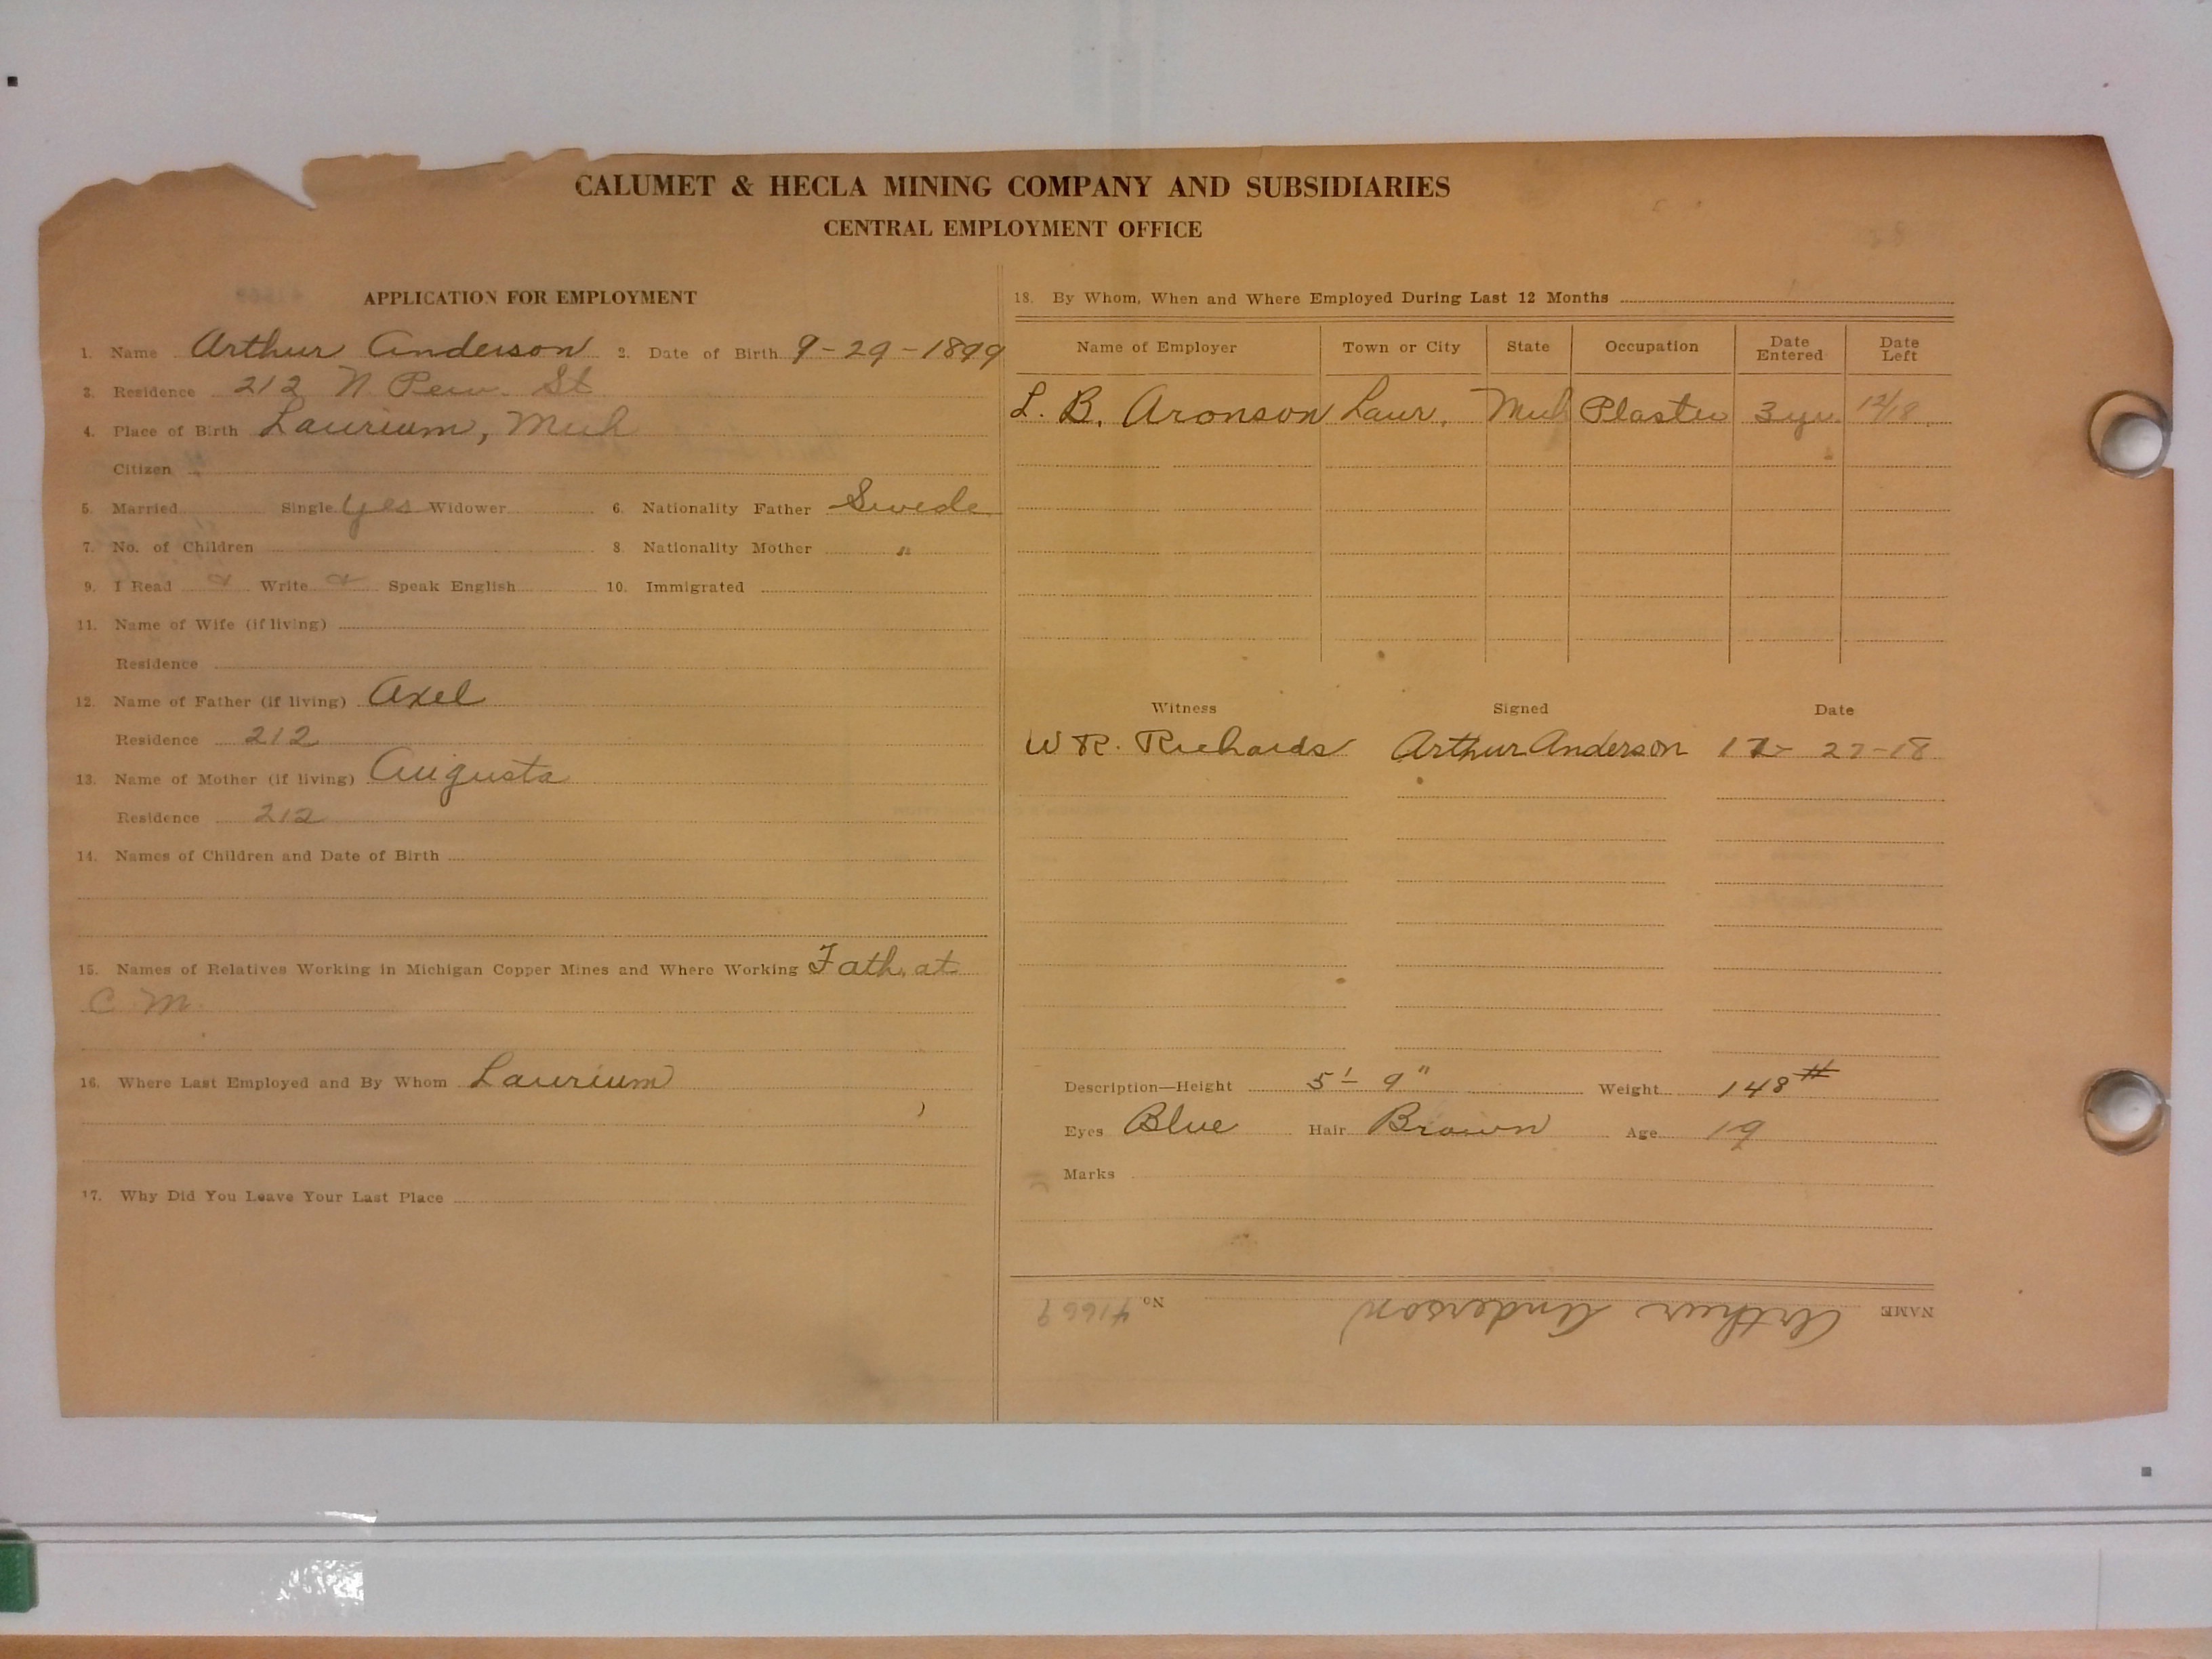 CALUMET & HECLA MINING COMPANY AND SUBSIDIARIES
CENTRAL EMPLOYMENT OFFICE
APPLICATION FOR EMPLOYMENT
1. Name Arthur Anderson 2. Date of Birth 9-29-1899
3. Residence 212 N. Pew. St
4. Place of Birth Laurium, Mich
Citizen
5. Married Single yes Widower 6. Nationality Father Swede
7. No. of Children 8. Nationality Mother "
9. I Read & Write & Speak English 10. Immigrated
11. Name of Wife (if living)
Residence
12. Name of Father (if living) Axel
Residence 212
13. Name of Mother (if living) Augusta
Residence 212
14. Names of Children and Date of Birth
15. Names of Relatives Working in Michigan Copper Mines and Where Working Fath. at
C. M.
16. Where Last Employed and By Whom Laurium
17. Why Did You Leave Your Last Place
18. By Whom, When and Where Employed During Last 12 Months
Name of Employer Town or City State Occupation Date Entered Date Left
L. B. Aronson Laur. Mich Plaster 3 yr. 12/18
Witness Signed Date
W R. Richards Arthur Anderson 12- 27-18
Description—Height 5'- 9" Weight 148#
Eyes Blue Hair Brown Age 19
Marks
NAME Arthur Anderson No. 41669